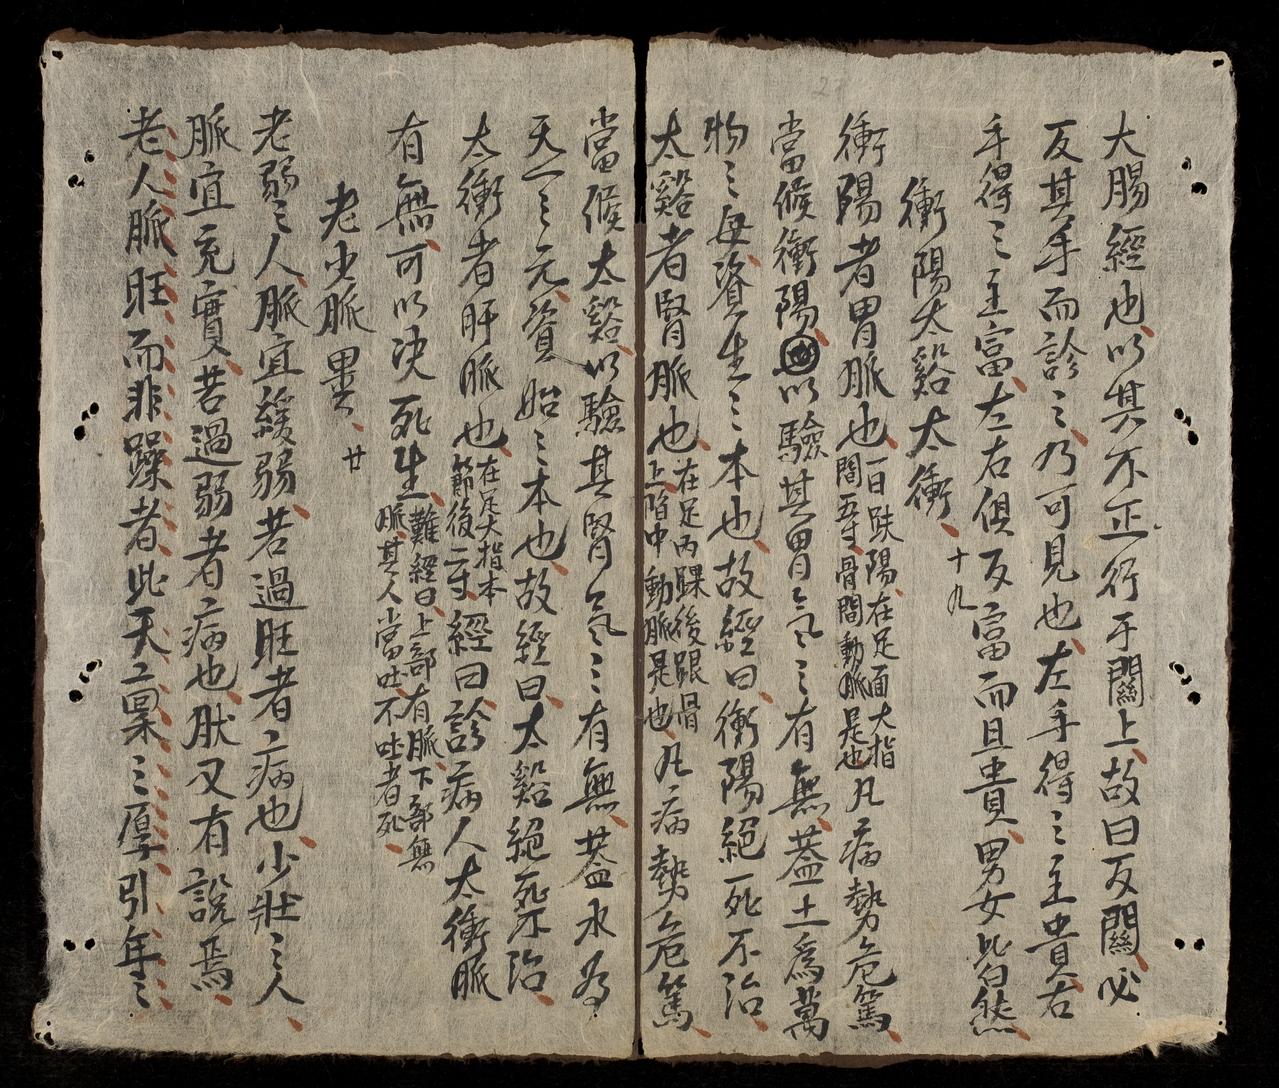 大腸經也以其不正行于關上故曰反關必
反其手而診之乃可見也左手得之主貴右
手得之主富左右俱反富而且貴男女皆然
衝陽太谿太衝 十九
衝陽者胃脈也一曰趺陽在足面大指
間五寸骨間動脈是也凡病勢危篤
當候衝陽以驗其胃氣之有無蓋土為萬
物之母資生之本也故經曰衝陽絕死不治
太谿者腎脈也在足內踝後跟骨
上陷中動脈是也凡病勢危篤
當候太谿以驗其腎氣之有無蓋水為
天一之元資始之本也故經曰太谿絕死不治
太衝者肝脈也在足大指本
節後二寸經曰診病人太衝脈
有無可以決死生難經曰上部有脈下部無
脈其人當吐不吐者死
老少脈異 廿
老弱之人脈宜緩弱若過旺者病也少壯之人
脈宜充實若過弱者病也肰又有說焉
老人脈旺而非躁者此天之稟之厚引年之